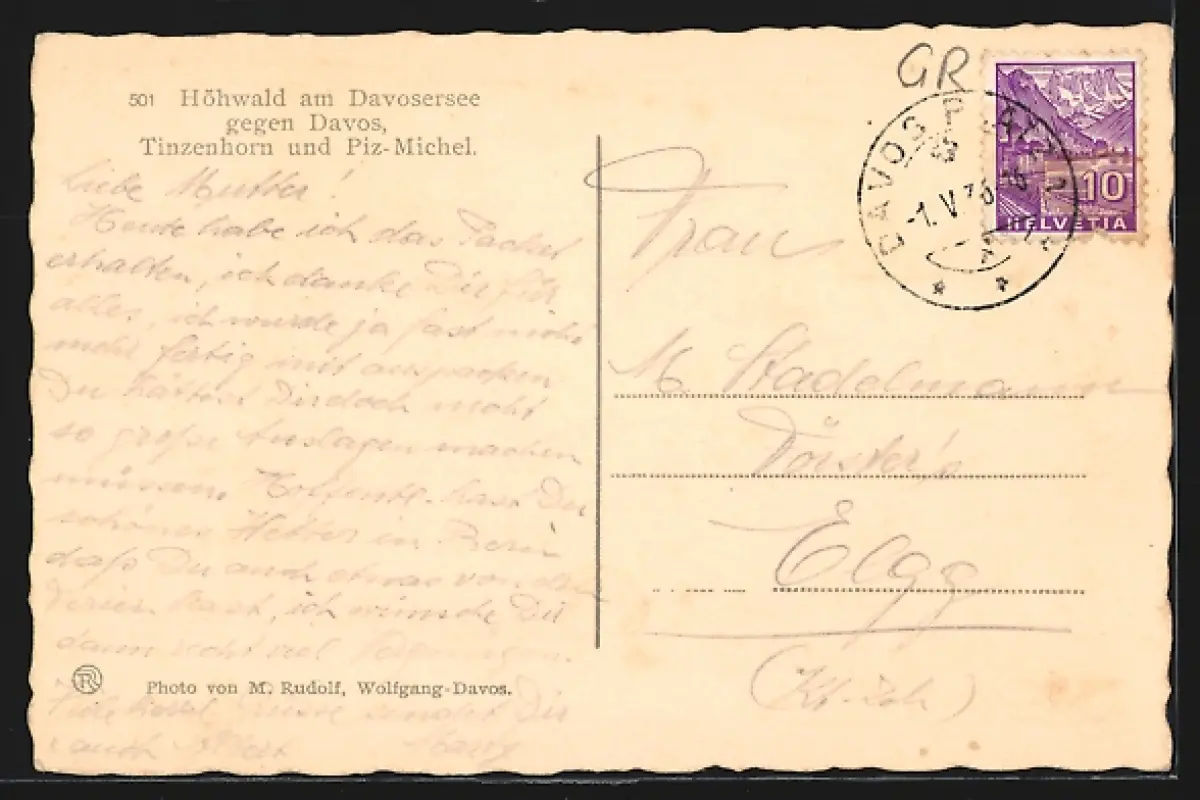 501 Höhwald am Davosersee
gegen Davos,
Tinzenhorn und Piz-Michel.
Liebe Mutter!
Heute habe ich das Packet
erhalten, ich danke Dir für
alles, ich wurde ja fast nicht
mehr fertig mit auspacken
Du hättest Dir doch nicht
so große Auslagen machen
müssen Hoffentl. hast Du
schönes Wetter in
daß Du auch etwas von den
Ferien hast, ich wünsche Dir
dann recht viel
Photo von M. Rudolf, Wolfgang-Davos.
Viele herzl. Grüsse sendet Dir
auch
GR
DAVOS PLATZ
-1.V.36
10
HELVETIA
Frau
M. Stadelmann
Elgg
(Kt. Zch)
R